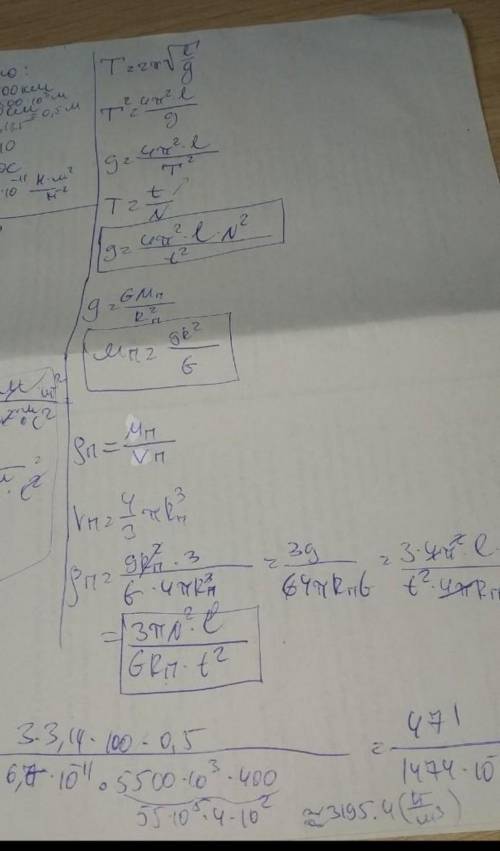 T=2π√(l/g)
T²=4π²l/g
g=4π²·l/T²
T=t/N
g=4π²·l·N²/t²
g=GMп/Rп²
Mп=gR²/G
ρп=Mп/Vп
Vп=4/3 πRп³
ρп=gRп²·3/G·4πRп³ =3g/G4πRпG =3·4π²·l/t²·4πRп
=3πN²·l/GRп·t²
3·3,14·100·0,5/6,7·10¹¹·5500·10³·400 =471/1474·10
55·10⁵·4·10²
≈3195.4(кг/м³)